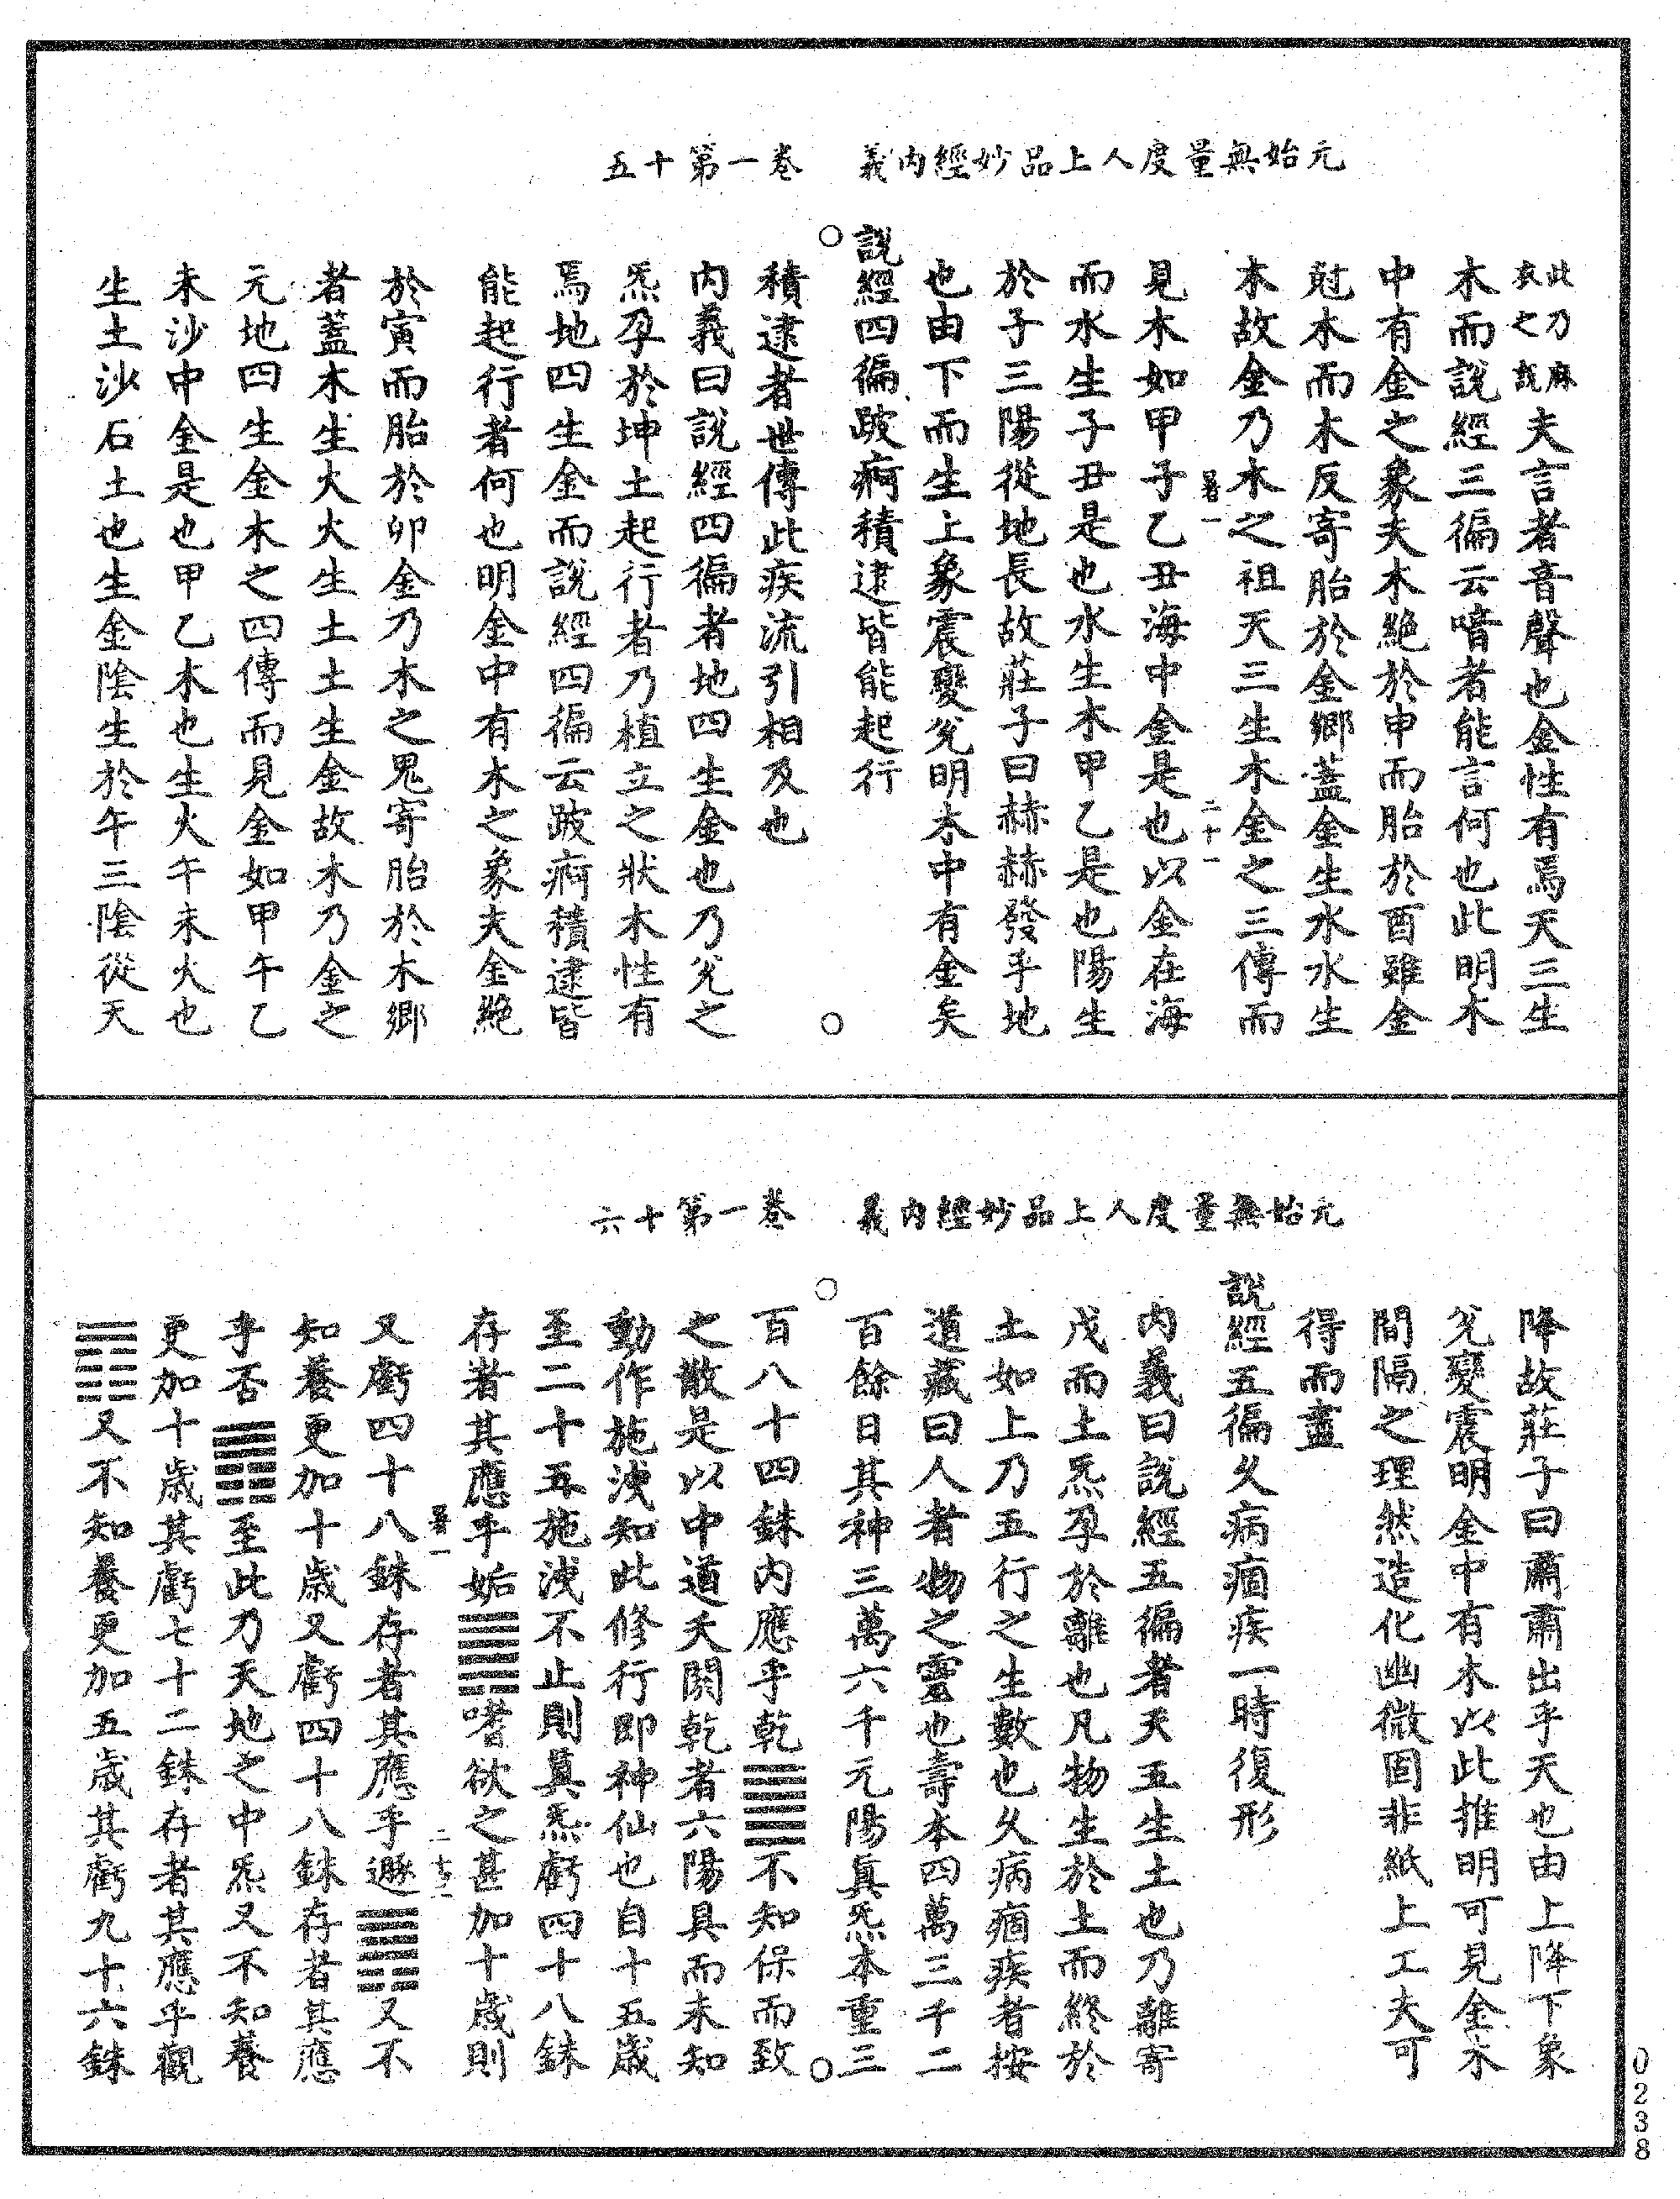 元始無量度人上品妙經內義　卷一第十五
此乃麻
衣之說夫言者音聲也金性有焉天三生
木而說經三徧云喑者能言何也此明木
中有金之象夫木絶於申而胎於酉雖金
尅木而木反寄胎於金鄉蓋金生水水生
木故金乃木之祖天三生木金之三傳而
見木如甲子乙丑海中金是也以金在海
而水生子丑是也水生木甲乙是也陽生
於子三陽從地長故莊子曰赫赫發乎地
也由下而生上象震變兊明木中有金矣
說經四徧跛痾積逮皆能起行
積逮者世傳此疾流引相及也
內義曰說經四徧者地四生金也乃兊之
炁孕於坤土起行者乃植立之狀木性有
焉地四生金而說經四徧云跛痾積逮皆
能起行者何也明金中有木之象夫金絶
於寅而胎於卯金乃木之鬼寄胎於木鄉
者蓋木生火火生土土生金故木乃金之
元地四生金木之四傳而見金如甲午乙
未沙中金是也甲乙木也生火午未火也
生土沙石土也生金陰生於午三陰從天
元始無量度人上品妙經內義　卷一第十六
降故莊子曰肅肅出乎天也由上降下象
兊變震明金中有木以此推明可見金木
間隔之理然造化幽微固非紙上工夫可
得而盡
說經五徧久病痼疾一時復形
內義曰說經五徧者天五生土也乃離寄
戊而土炁孕於離也凡物生於土而終於
土如上乃五行之生數也久病痼疾者按
道藏曰人者物之靈也壽本四萬三千二
百餘日其神三萬六千元陽真炁本重三
百八十四銖內應乎乾䷀不知保而致
之散是以中道夭閼乾者六陽具而未知
動作施洩知此修行即神仙也自十五歲
至二十五施洩不止則真炁虧四十八銖
存者其應乎姤䷫嗜欲之甚加十歲則
又虧四十八銖存者其應乎遯䷠又不
知養更加十歲又虧四十八銖存者其應
乎否䷋至此乃天地之中炁又不知養
更加十歲其虧七十二銖存者其應乎觀
䷓又不知養更加五歲其虧九十六銖
0238